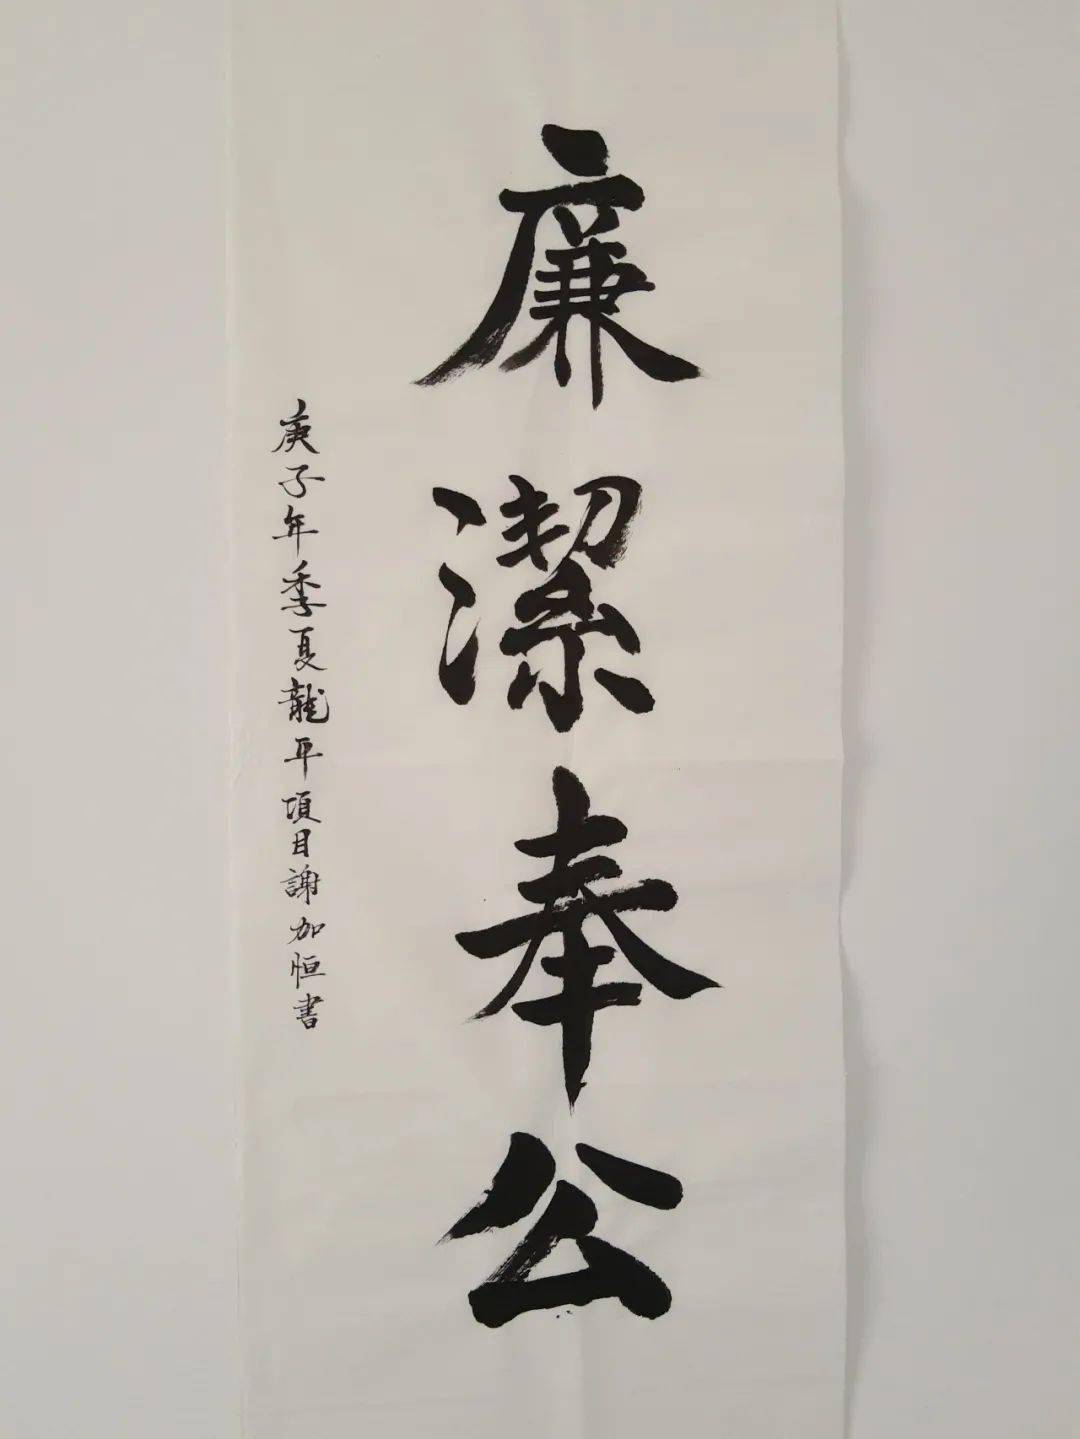 廉潔奉公
庚子年季夏龍平項目謝加恒書